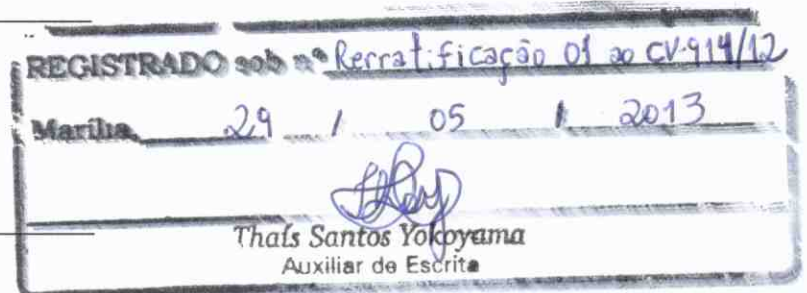 REGISTRADO sob nº Rerratificação 01 ao CV-914/12
Marília, 29 / 05 / 2013
Thaís Santos Yokoyama
Auxiliar de Escrita